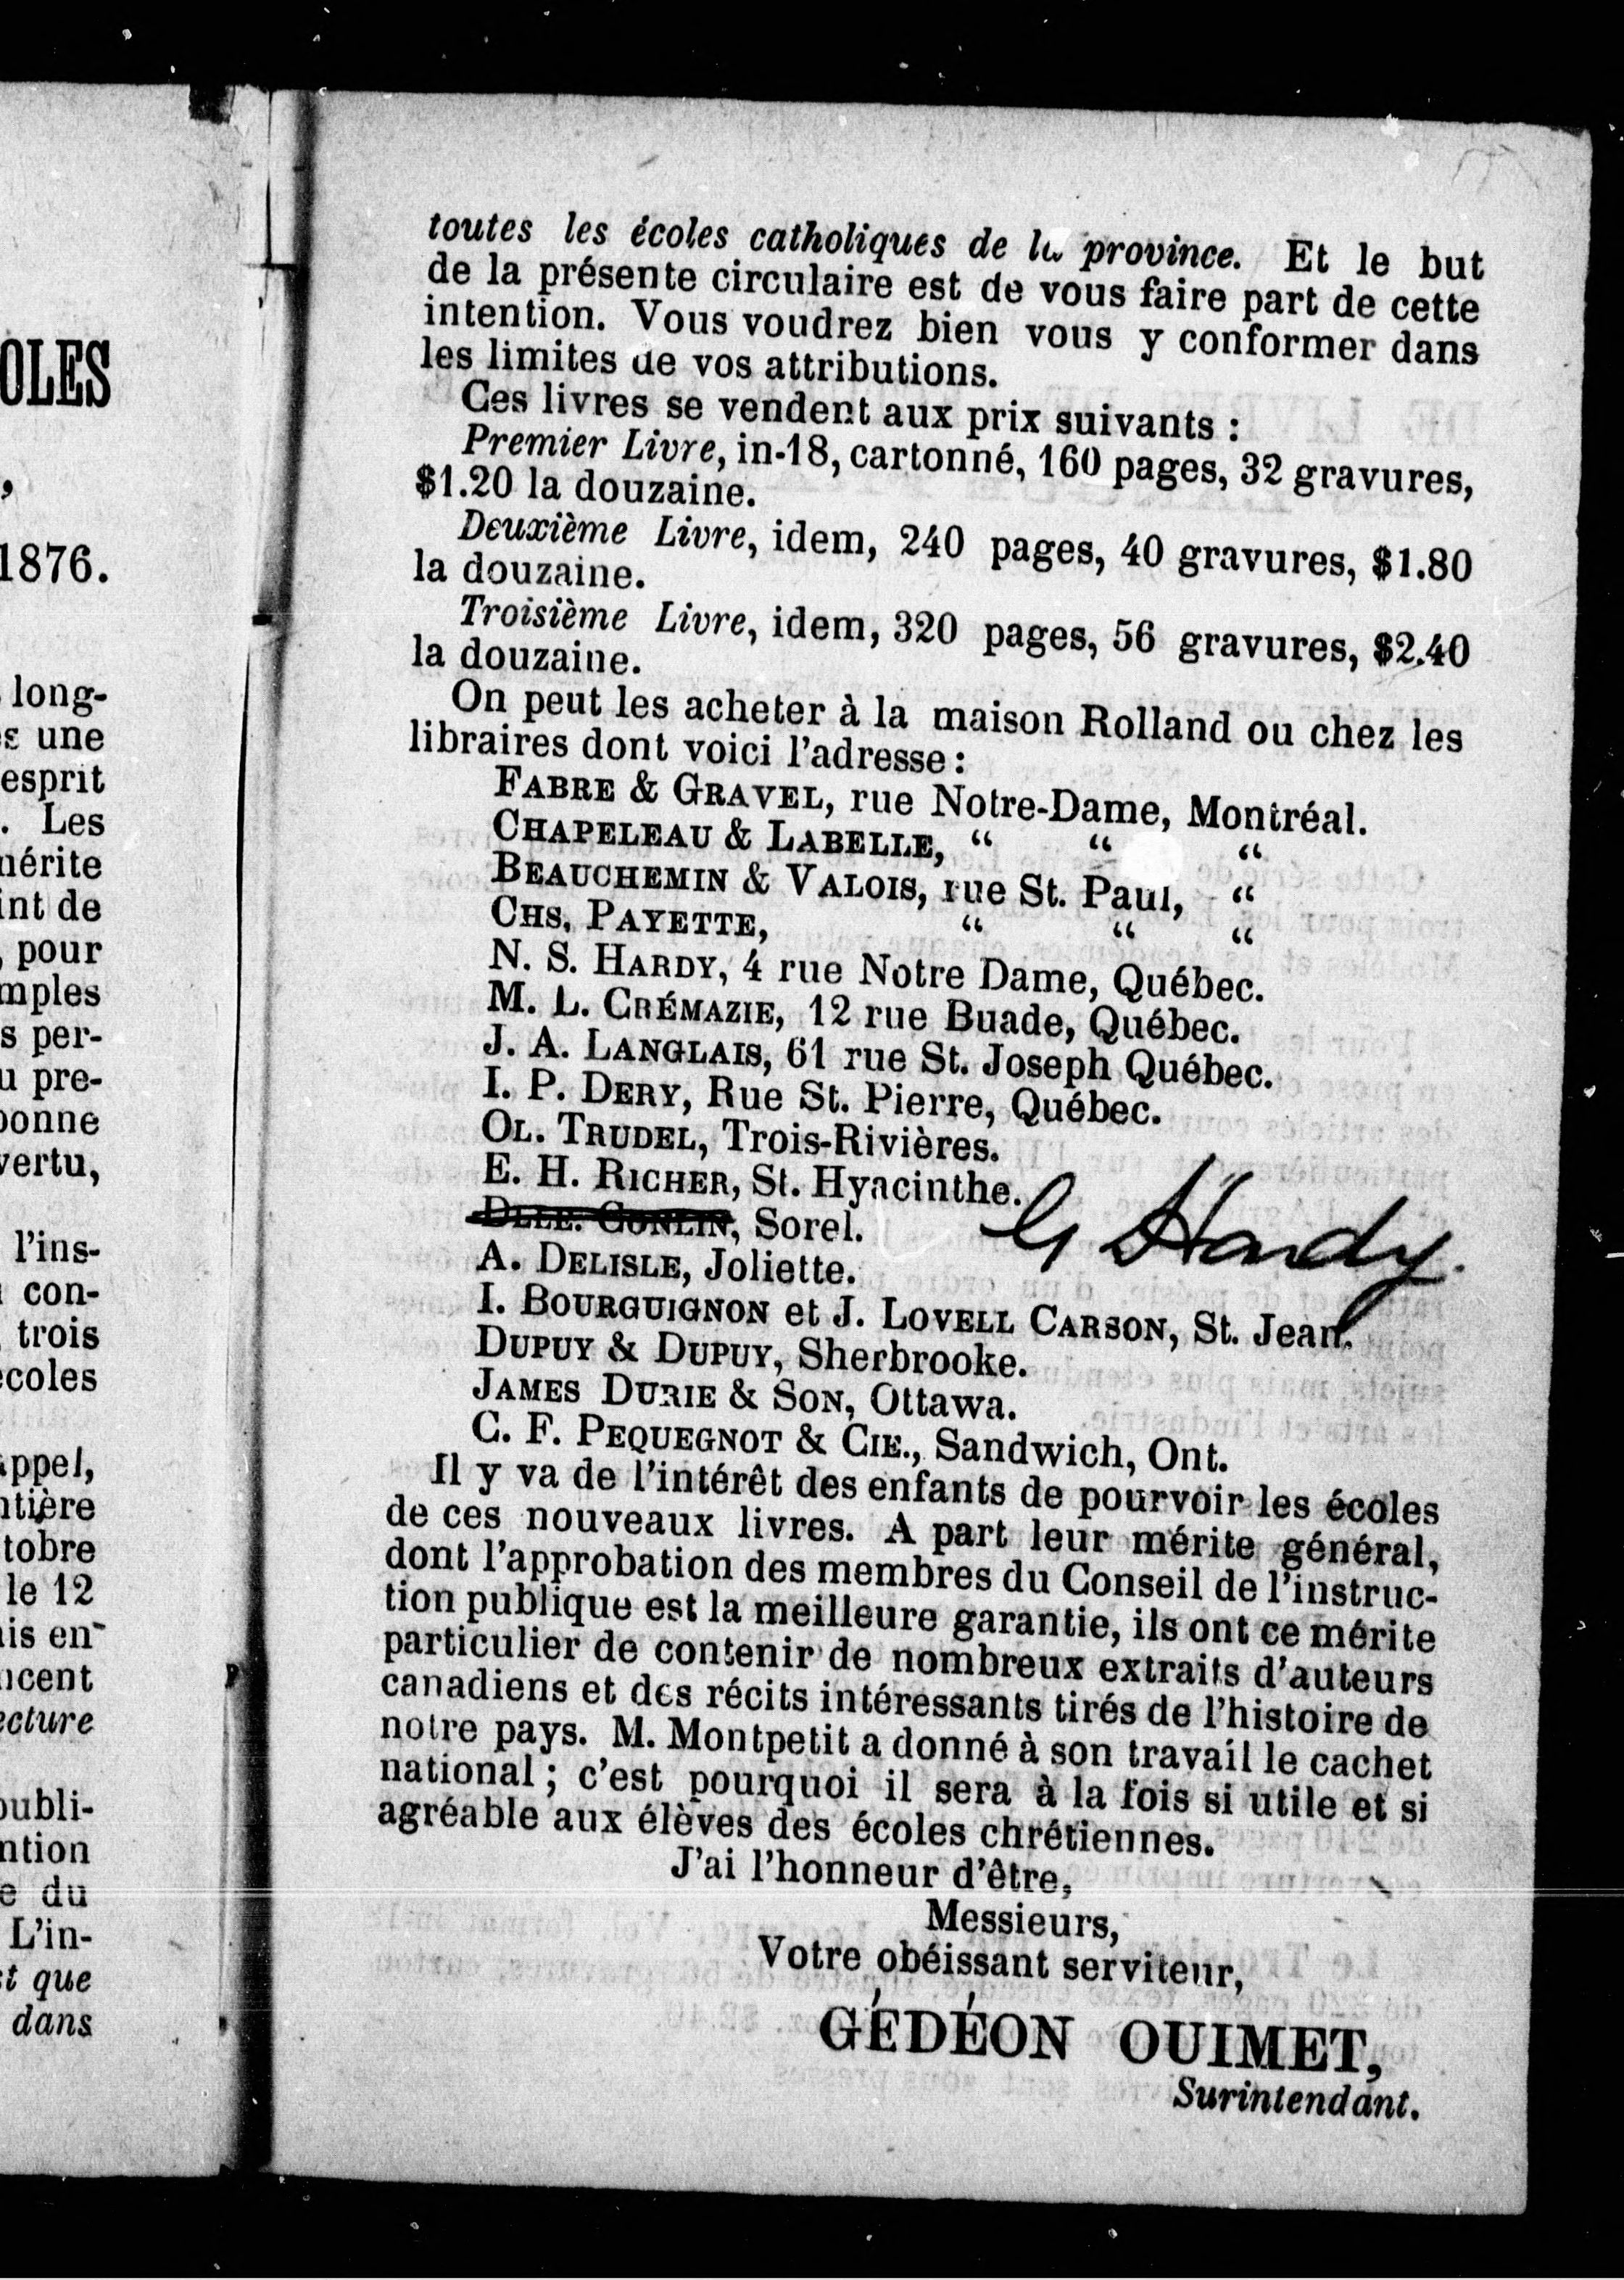 OLES
,
1876.
long-
une
esprit
. Les
mérite
int de
, pour
mples
s per-
u pre-
bonne
vertu,
l'ins-
con-
trois
écoles
appel,
ntière
tobre
le 12
is en-
ncent
ecture
publi-
ntion
e du
L'in-
t que
dans
toutes les écoles catholiques de la province. Et le but
de la présente circulaire est de vous faire part de cette
intention. Vous voudrez bien vous y conformer dans
les limites de vos attributions.
Ces livres se vendent aux prix suivants :
Premier Livre, in-18, cartonné, 160 pages, 32 gravures,
$1.20 la douzaine.
Deuxième Livre, idem, 240 pages, 40 gravures, $1.80
la douzaine.
Troisième Livre, idem, 320 pages, 56 gravures, $2.40
la douzaine.
On peut les acheter à la maison Rolland ou chez les
libraires dont voici l'adresse :
FABRE & GRAVEL, rue Notre-Dame, Montréal.
CHAPELEAU & LABELLE, “ “ “
BEAUCHEMIN & VALOIS, rue St. Paul, “
CHS. PAYETTE, “ “ “
N. S. HARDY, 4 rue Notre Dame, Québec.
M. L. CRÉMAZIE, 12 rue Buade, Québec.
J. A. LANGLAIS, 61 rue St. Joseph Québec.
I. P. DERY, Rue St. Pierre, Québec.
OL. TRUDEL, Trois-Rivières.
E. H. RICHER, St. Hyacinthe.
DLLE. CONLIN, Sorel. G Hardy.
A. DELISLE, Joliette.
I. BOURGUIGNON et J. LOVELL CARSON, St. Jean.
DUPUY & DUPUY, Sherbrooke.
JAMES DURIE & SON, Ottawa.
C. F. PEQUEGNOT & CIE., Sandwich, Ont.
Il y va de l'intérêt des enfants de pourvoir les écoles
de ces nouveaux livres. A part leur mérite général,
dont l'approbation des membres du Conseil de l'instruc-
tion publique est la meilleure garantie, ils ont ce mérite
particulier de contenir de nombreux extraits d'auteurs
canadiens et des récits intéressants tirés de l'histoire de
notre pays. M. Montpetit a donné à son travail le cachet
national ; c'est pourquoi il sera à la fois si utile et si
agréable aux élèves des écoles chrétiennes.
J'ai l'honneur d'être,
Messieurs,
Votre obéissant serviteur,
GÉDÉON OUIMET,
Surintendant.